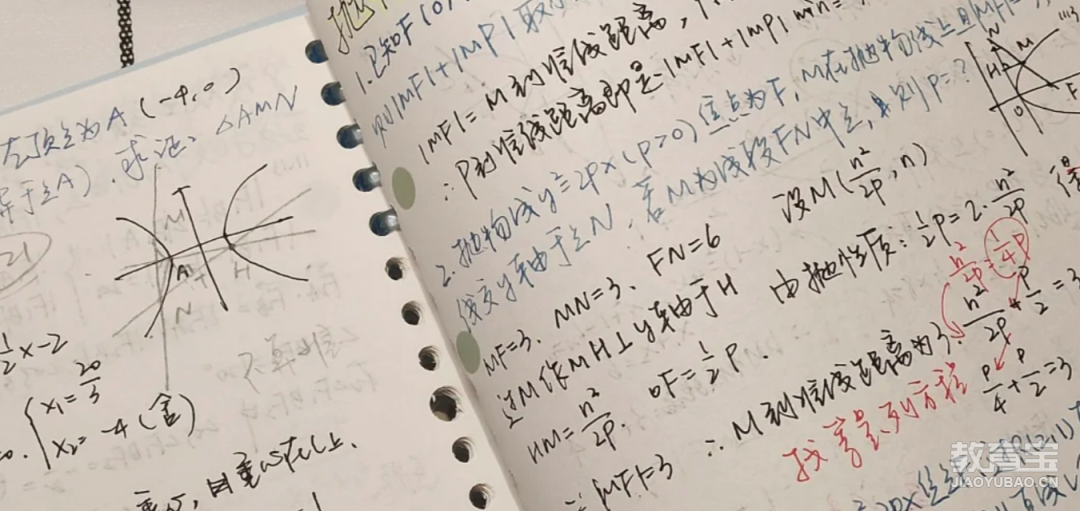 左顶点为A(-4,0)
异于点A).求证:△AMN
M
A F H
N
21
1/2x-2
x₁=20/3
x₂=-4(舍)
抛
1.已知F(0,
则|MF|+|MP|取
|MF|=M到准线距离,
∴P到准线距离即是|MF|+|MP|min=
2.抛物线y²=2px(p>0)焦点为F,M在抛物线上且|MF|=
线交y轴于点N,若M为线段FN中点,则p=?
N
H M
O F
MF=3. MN=3. FN=6 设M(n²/2p,n)
过M作MH⊥y轴于H 由抛性质:1/2p=2·n²/2p
HM=n²/2p. OF=1/2p.
n²/2p=1/4p
∵|MF|=3 ∴M到准线距离为3. n²/2p+p/2=3
找等量列方程 p/4+p/2=3
教育宝
JIAOYUBAO.CN